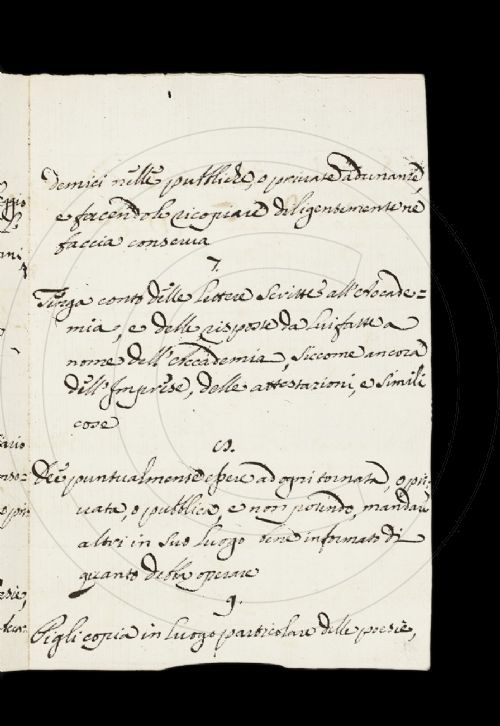 demici nelle pubbliche, o private adunanze,
e facendole ricopiare diligentemente ne
faccia conserva
7.
Tenga conto delle lettere scritte all'Accade=
mia, e delle risposte da lui fatte a
nome dell'Accademia, siccome ancora
dell'Imprese, delle attestazioni, e simili
cose
8.
Dee puntualmente essere ad ogni tornata, o pri-
vata, o pubblica, e non potendo, mandare
altri in suo luogo bene informato di
quanto debba operare
9.
Pigli copia in luogo particolare delle poesie,